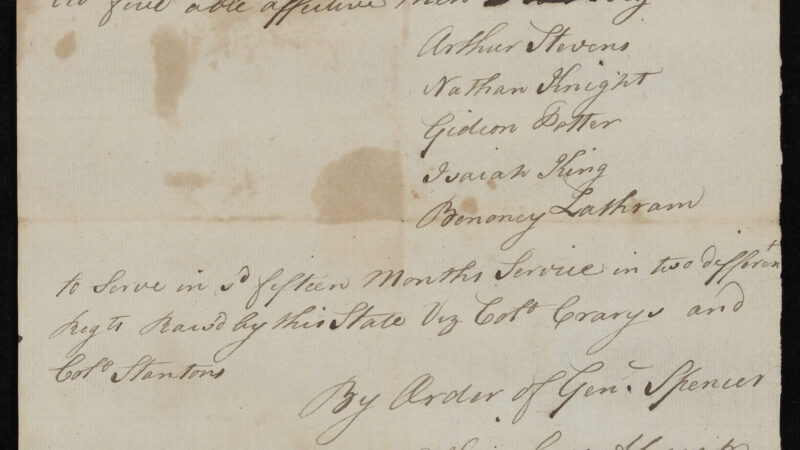 five able affective men
Arthur Stevens
Nathan Knight
Gideon Potter
Isaiah King
Bononey Lathram
to Serve in sd fifteen Months Service in two different
Regts Raisd by this State Viz Colo Crarys and
Colo Stantons
By Order of Genl Spencer